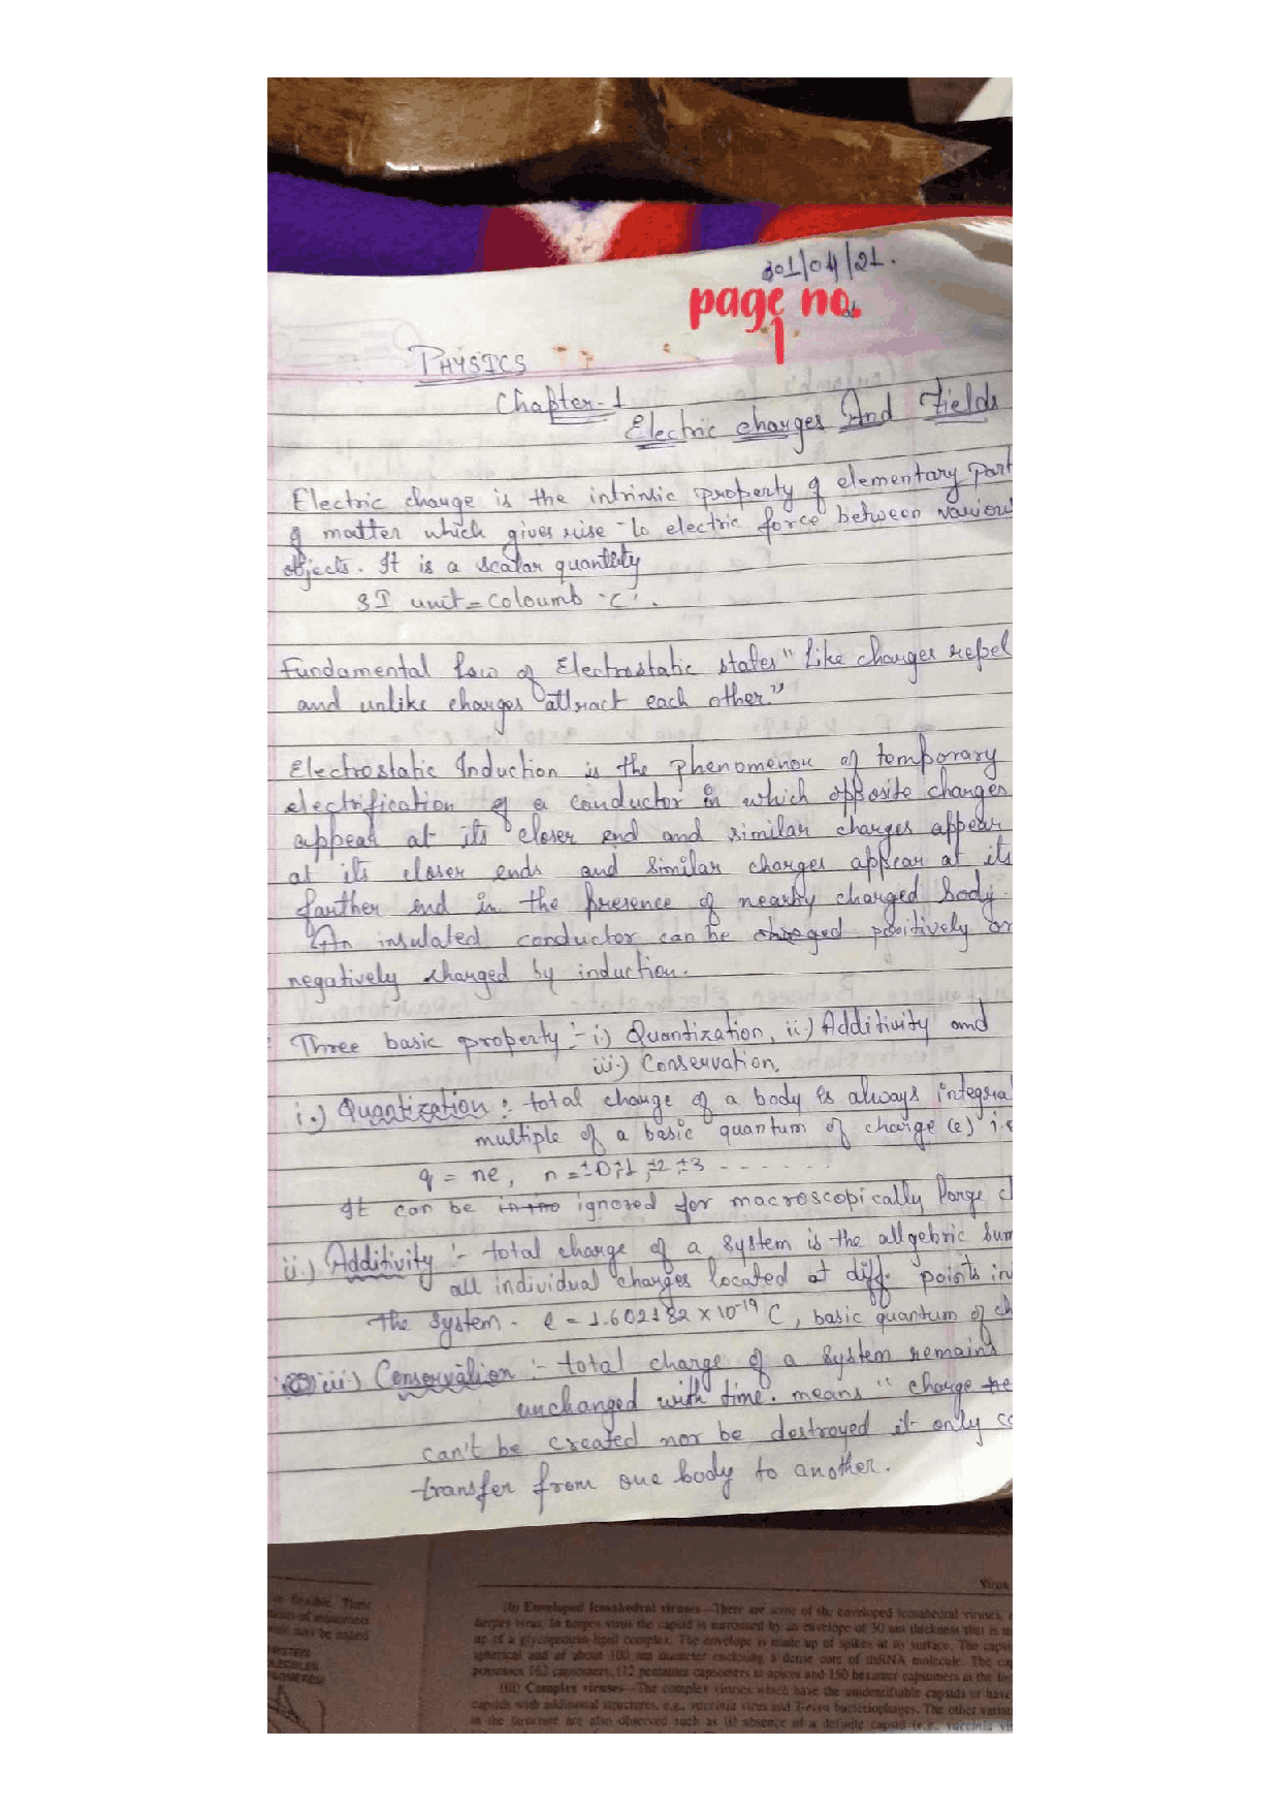 301/04/21.
page no.
1
PHYSICS
Chapter-1
Electric charges And Fields
Electric charge is the intrinsic property of elementary part
of matter which gives rise to electric force between various
objects. It is a scalar quantity
SI unit = coloumb 'C'.
Fundamental law of Electrostatic states "Like charges repel
and unlike charges attract each other."
Electrostatic Induction is the phenomenon of temporary
electrification of a conductor in which opposite charges
appear at its closer end and similar charges appear
at its closer ends and similar charges appear at its
farther end in the presence of nearby charged body.
An insulated conductor can be charged positively or
negatively charged by induction.
Three basic property :- i.) Quantization, ii.) Additivity and
iii.) Conservation.
i.) Quantization : total charge of a body is always integra
multiple of a basic quantum of charge (e) i.e
q = ne, n = ±0,±1,±2,±3 - - - - - -
It can be ignored for macroscopically large c
ii.) Additivity :- total charge of a system is the allgebric sum
all individual charges located at diff. points in
the system. e = 1.602182 × 10⁻¹⁹ C, basic quantum of ch
iii.) Conservation :- total charge of a system remains
unchanged with time. means " charge ne
can't be created nor be destroyed it only ca
transfer from one body to another.
Virus
(b) Enveloped Icosahedral viruses—There are some of the enveloped icosahedral viruses,
herpes virus. In herpes virus the capsid is surrounded by an envelope of 30 nm thickness that is m
up of a glycoprotein-lipid complex. The envelope is made up of spikes at its surface. The caps
spherical and of about 100 nm diameter enclosing a dense core of dsRNA molecule. The ca
possesses 162 capsomers, 112 pentamer capsomers at apices and 150 hexamer capsomers at the
(iii) Complex viruses—The complex viruses which have the unidentifiable capsids or have
capsids with additional structures, e.g., vaccinia virus and T-even bacteriophages. The other variat
in the structure are also observed such as (i) absence of a definite capsid (e.g., vaccinia vi